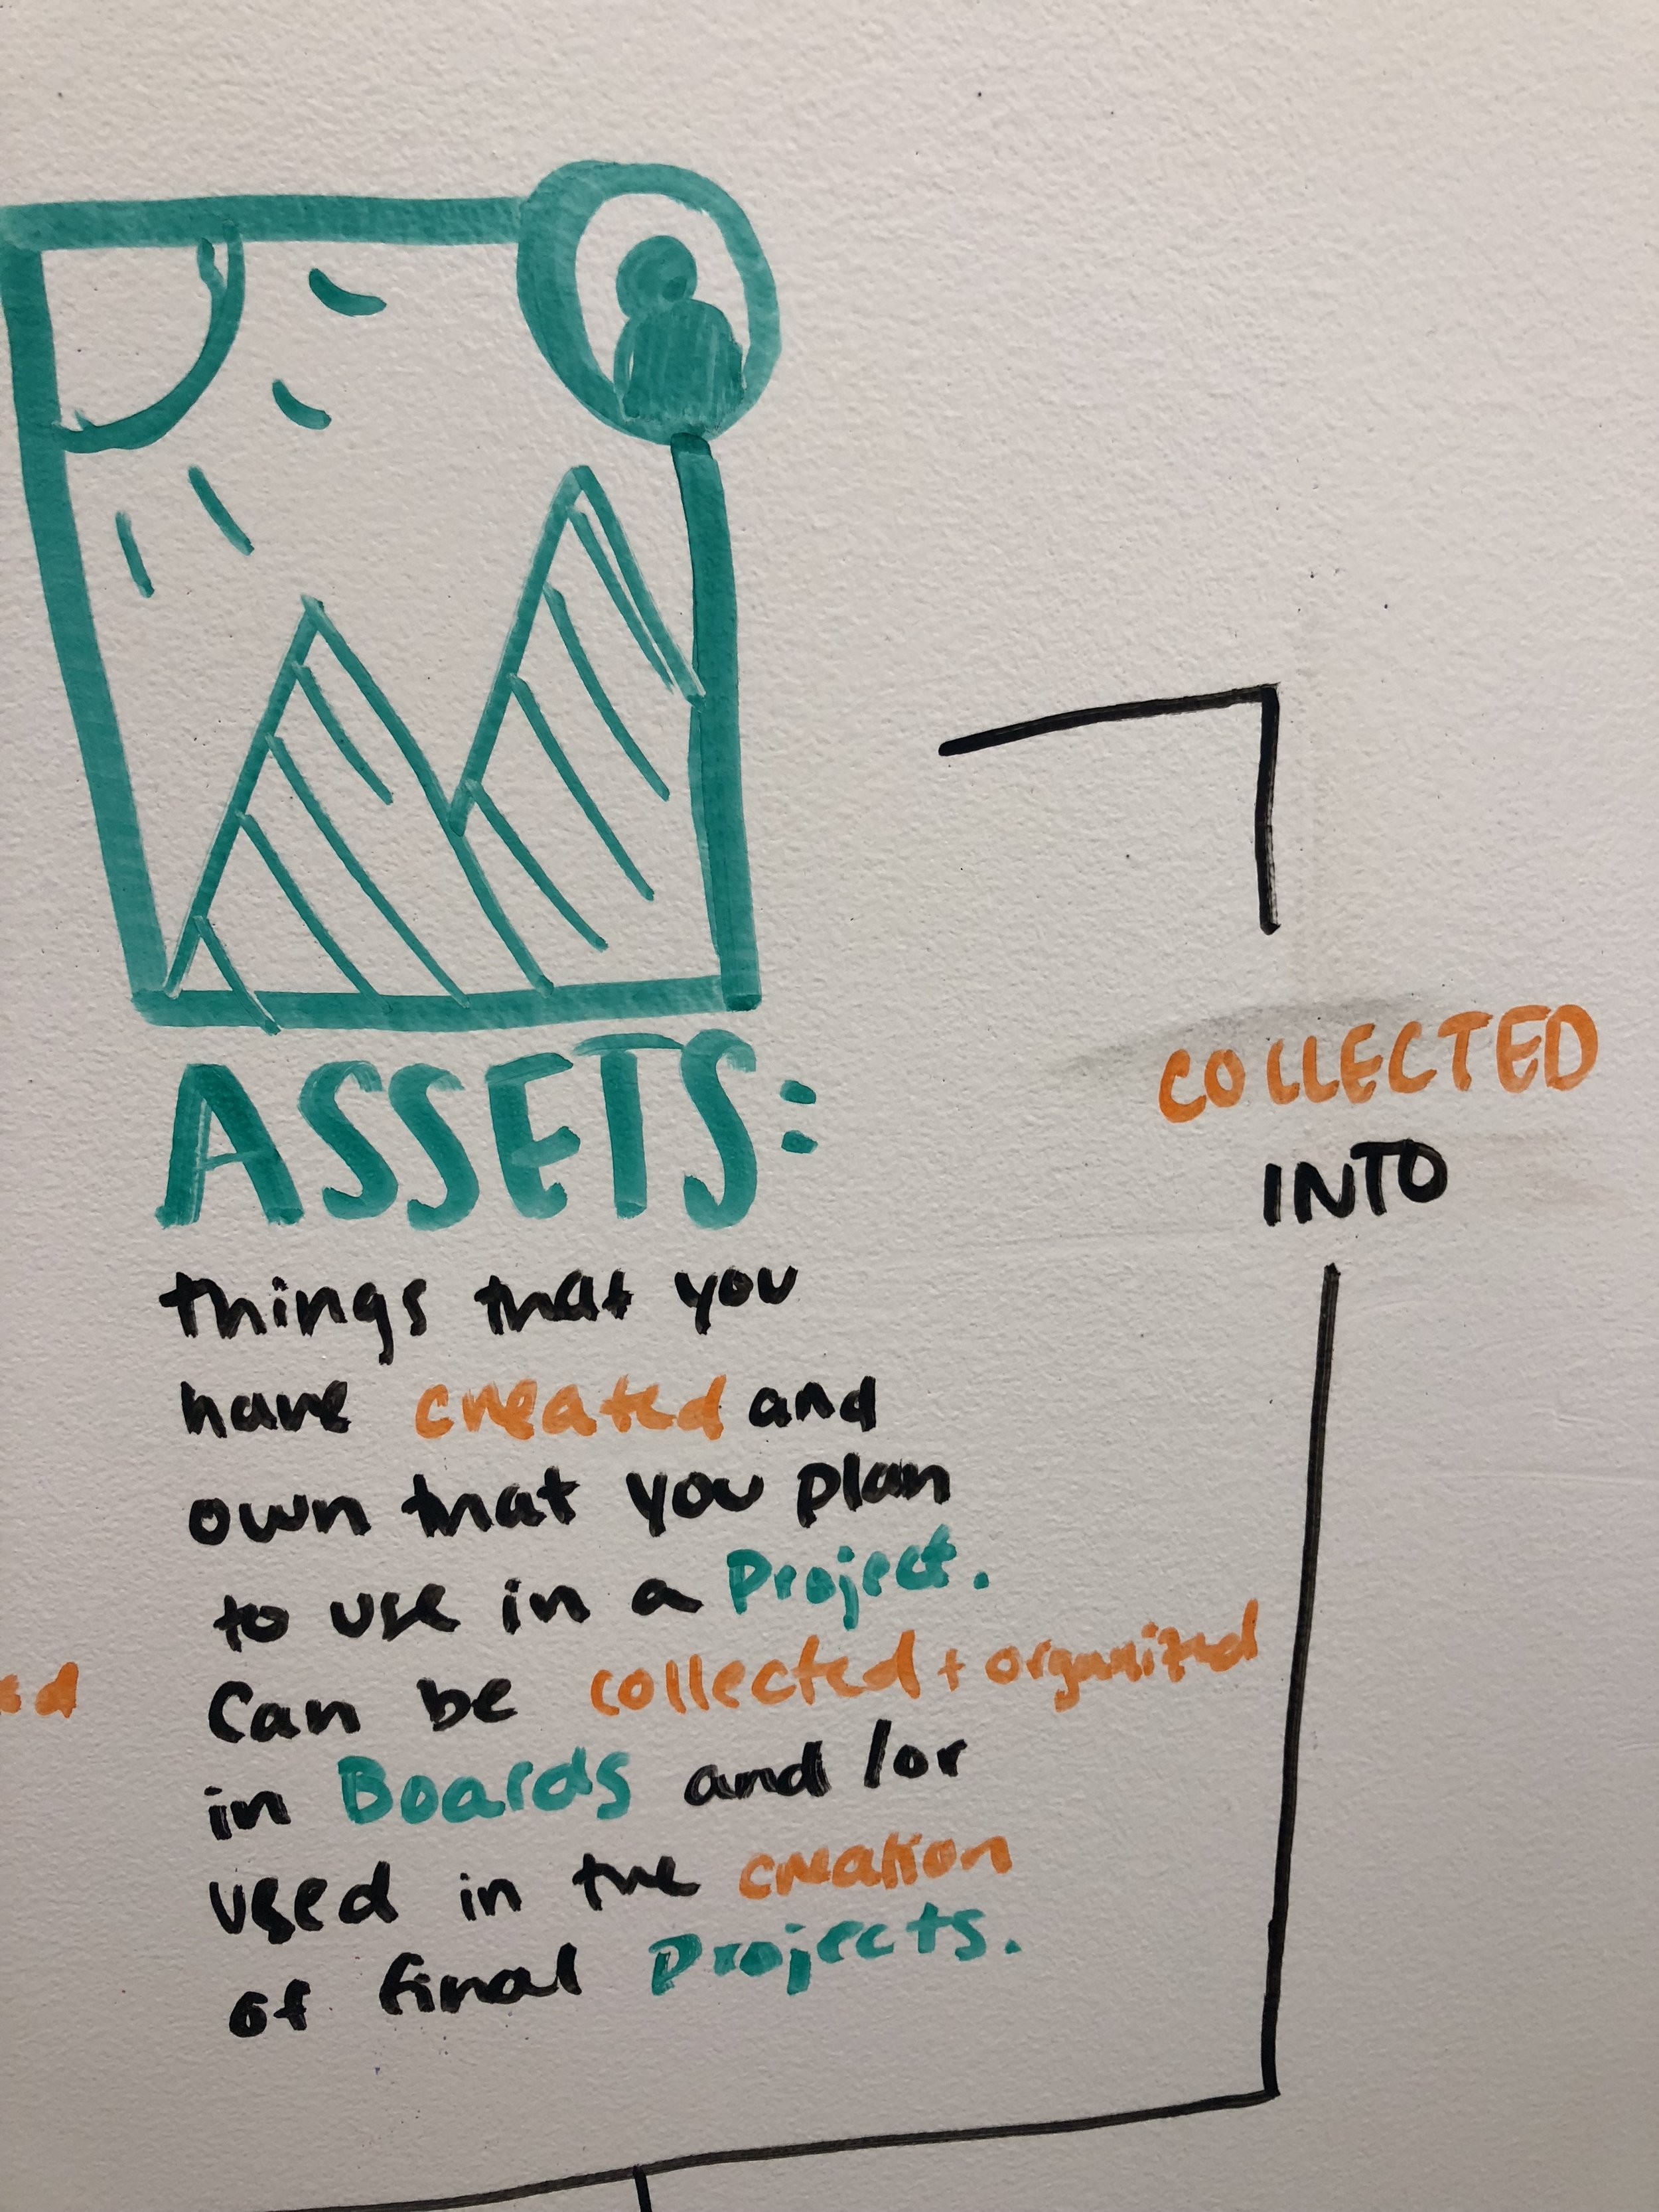 ASSETS:
things that you
have created and
own that you plan
to use in a Project.
Can be collected + organized
in Boards and /or
used in the creation
of final Projects.
COLLECTED
INTO